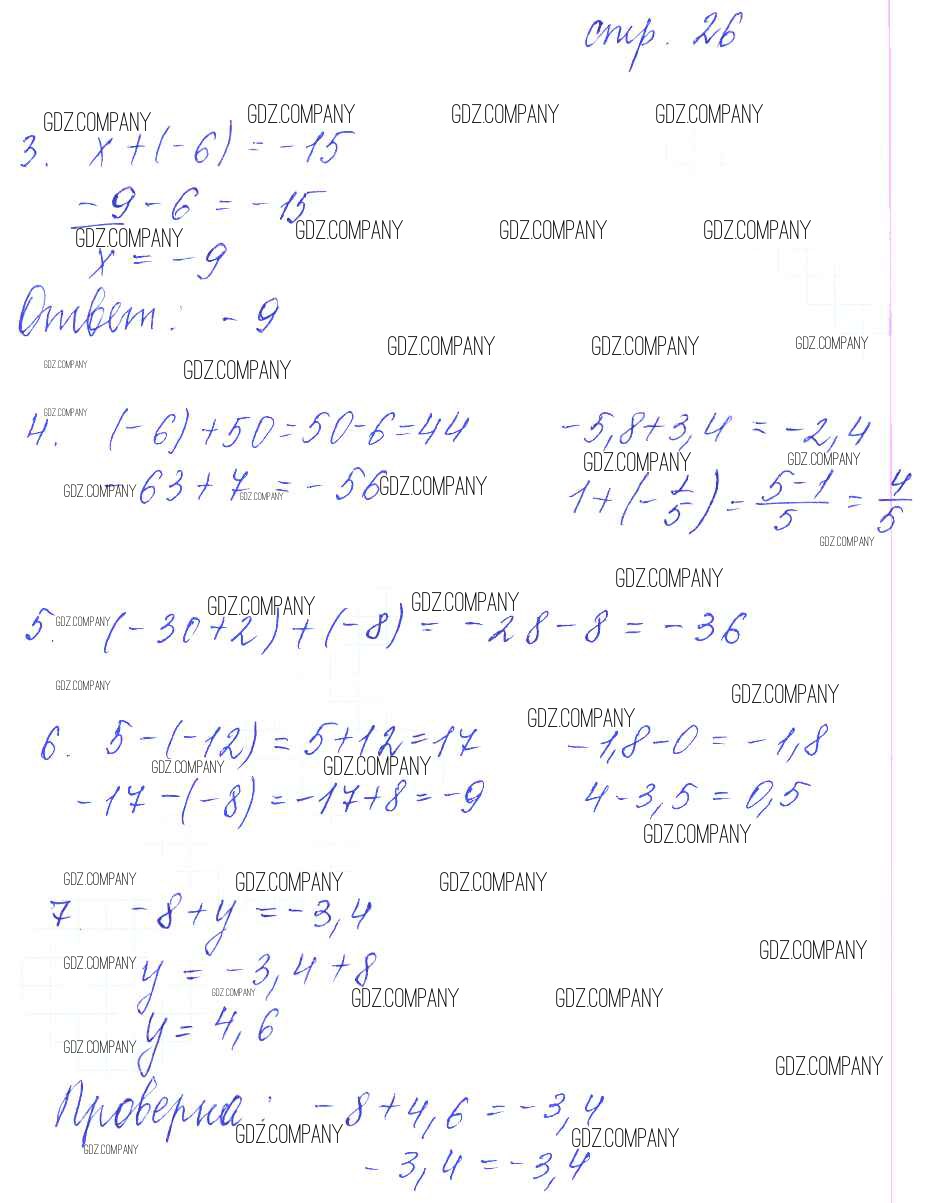 стр. 26
GDZ.COMPANY GDZ.COMPANY GDZ.COMPANY GDZ.COMPANY
3. x + (-6) = -15
-9 - 6 = -15
GDZ.COMPANY GDZ.COMPANY GDZ.COMPANY GDZ.COMPANY
x = -9
Ответ: -9
GDZ.COMPANY GDZ.COMPANY GDZ.COMPANY GDZ.COMPANY GDZ.COMPANY
GDZ.COMPANY
4. (-6) + 50 = 50 - 6 = 44 -5,8 + 3,4 = -2,4
GDZ.COMPANY GDZ.COMPANY
-63 + 7 = -56 1 + (-1/5) = 5-1/5 = 4/5
GDZ.COMPANY GDZ.COMPANY GDZ.COMPANY
GDZ.COMPANY
GDZ.COMPANY
GDZ.COMPANY GDZ.COMPANY GDZ.COMPANY
5. (-30 + 2) + (-8) = -28 - 8 = -36
GDZ.COMPANY GDZ.COMPANY
GDZ.COMPANY
6. 5 - (-12) = 5 + 12 = 17 -1,8 - 0 = -1,8
GDZ.COMPANY GDZ.COMPANY
-17 - (-8) = -17 + 8 = -9 4 - 3,5 = 0,5
GDZ.COMPANY
GDZ.COMPANY GDZ.COMPANY GDZ.COMPANY
7 -8 + y = -3,4
GDZ.COMPANY
y = -3,4 + 8
GDZ.COMPANY GDZ.COMPANY GDZ.COMPANY GDZ.COMPANY
y = 4,6
GDZ.COMPANY GDZ.COMPANY
Проверка: -8 + 4,6 = -3,4
GDZ.COMPANY GDZ.COMPANY GDZ.COMPANY
-3,4 = -3,4